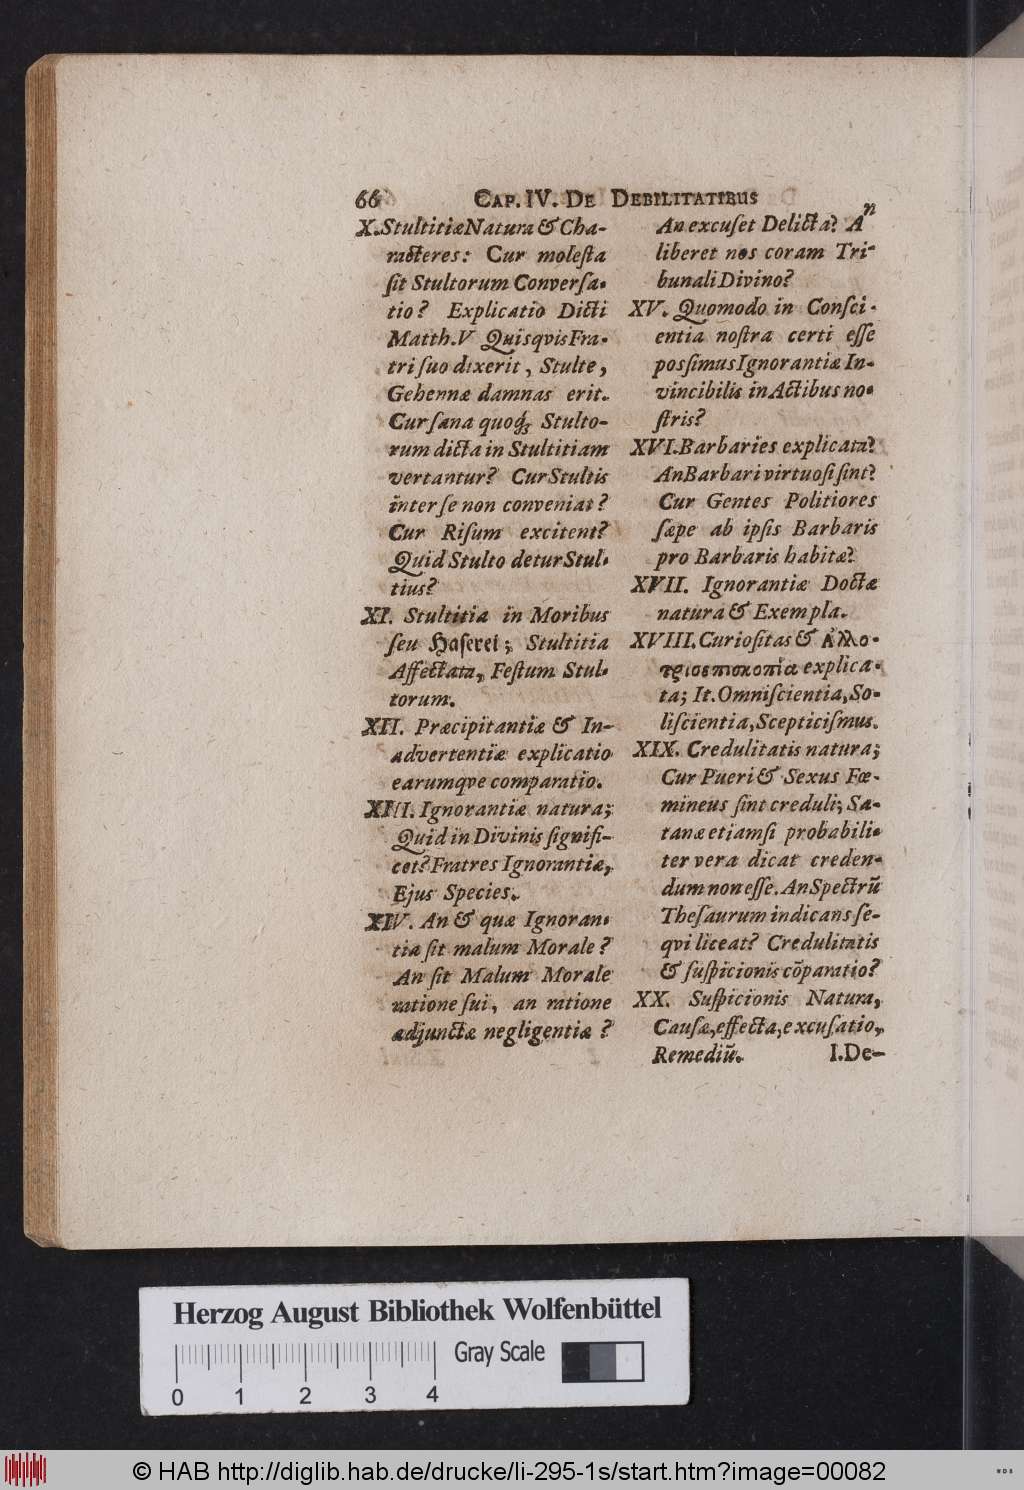 66 CAP. IV. DE DEBILITATIBUS
X. Stultitiæ Natura & Cha-
racteres: Cur molesta
sit Stultorum Conversa-
tio? Explicatio Dicti
Matth. V Quisqvis Fra-
tri suo dixerit, Stulte,
Gehennæ damnas erit.
Cur sana quoq; Stulto-
rum dicta in Stultitiam
vertantur? Cur Stultis
inter se non conveniat?
Cur Risum excitent?
Quid Stulto detur Stul-
tius?
XI. Stultitia in Moribus
seu Haserei; Stultitia
Affectata, Festum Stul-
torum.
XII. Præcipitantiæ & In-
advertentiæ explicatio
earumqve comparatio.
XIII. Ignorantiæ natura;
Quid in Divinis signifi-
cet? Fratres Ignorantiæ,
Ejus Species.
XIV. An & quæ Ignoran-
tia sit malum Morale?
An sit Malum Morale
ratione sui, an ratione
adjunctæ negligentiæ?
An excuset Delicta? An
liberet nos coram Tri-
bunali Divino?
XV. Quomodo in Consci-
entia nostra certi esse
possimus Ignorantiæ In-
vincibilis in Actibus no-
stris?
XVI. Barbaries explicata?
An Barbari virtuosi sint?
Cur Gentes Politiores
sæpe ab ipsis Barbaris
pro Barbaris habitæ?
XVII. Ignorantiæ Doctæ
natura & Exempla.
XVIII. Curiositas & Ἀλλο-
τριοεπισκοπία explica-
ta; It. Omniscientia, So-
liscientia, Scepticismus.
XIX. Credulitatis natura;
Cur Pueri & Sexus Fœ-
mineus sint creduli; Sa-
tanæ etiamsi probabili-
ter vera dicat creden-
dum non esse. An Spectrū
Thesaurum indicans se-
qvi liceat? Credulitatis
& suspicionis cōparatio?
XX. Suspicionis Natura,
Causæ, effecta, excusatio,
Remediū. I. De-
Herzog August Bibliothek Wolfenbüttel
Gray Scale
0 1 2 3 4
© HAB http://diglib.hab.de/drucke/li-295-1s/start.htm?image=00082